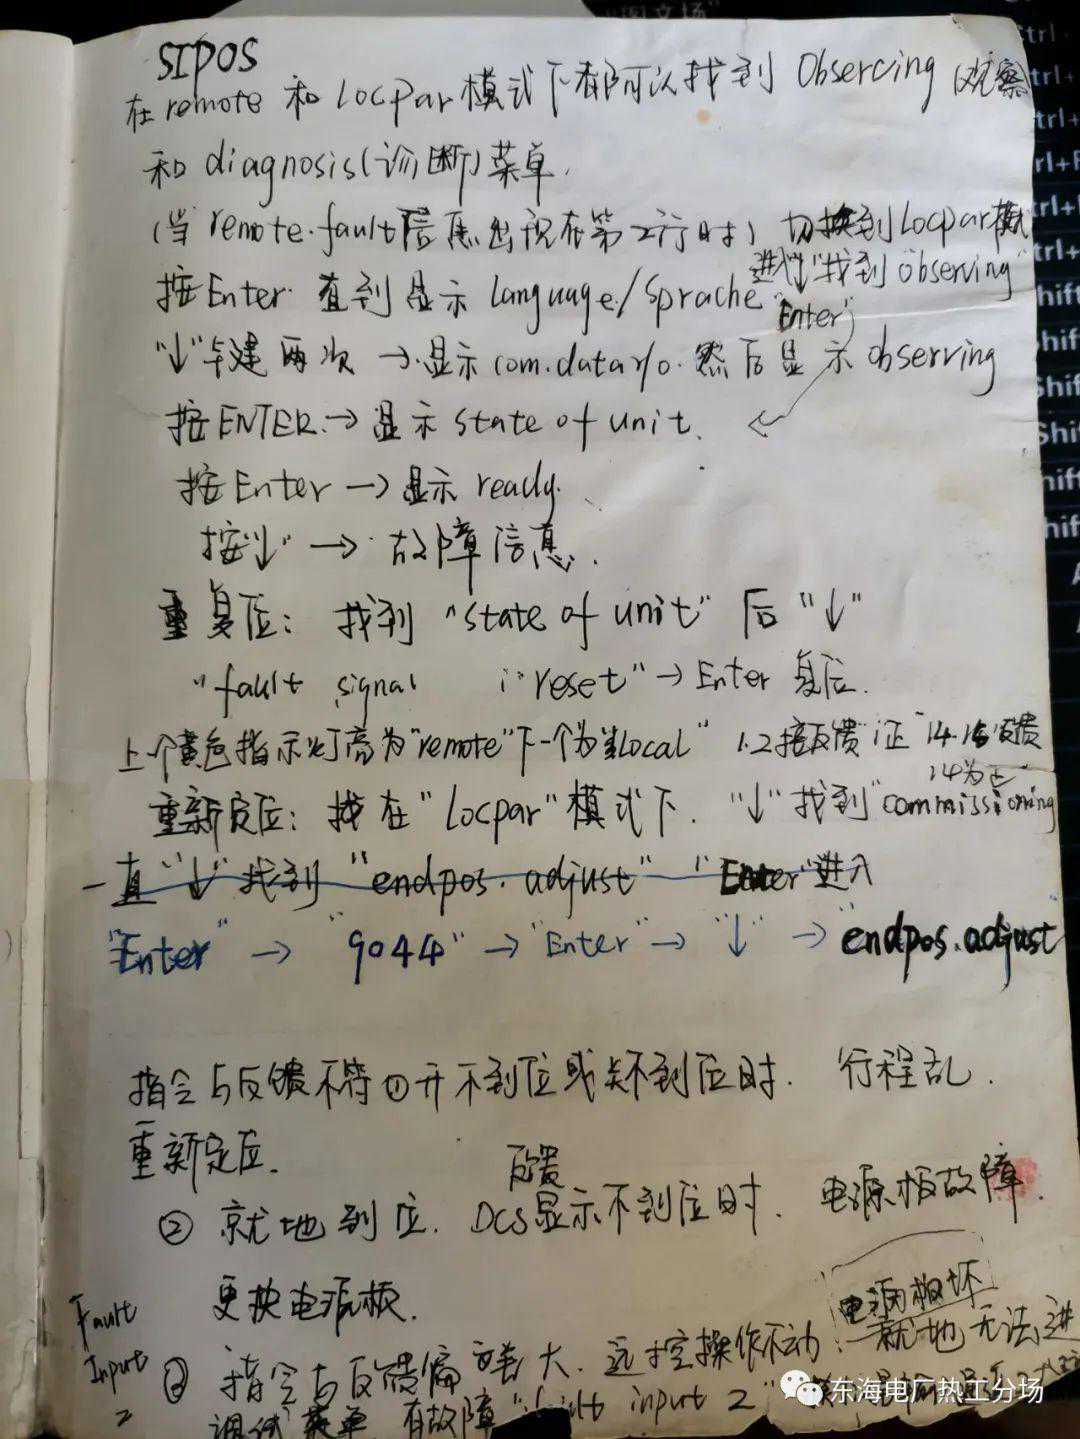 SIPOS
在remote 和 Locpar 模式下都可以找到 Observing (观察
和 diagnosis(诊断)菜单.
(当 remote.fault信息出现在第2行时) 切换到Locpar模式
进入"↓"找到 observing"
按Enter 直到显示 language/sprache "Enter"
"↓"键 两次 → 显示 com.data r/o. 然后显示 observing
按ENTER → 显示 state of unit.
按Enter → 显示 ready.
按"↓" → 故障信息.
重复位: 找到 "state of unit" 后 "↓"
"fault signal "reset" → Enter 复位.
上一个黄色指示灯亮为"remote"下一个为"Local" 1.2接反馈 14.15反馈
14为正
重新定位: 找在"Locpar"模式下. "↓"找到"commissioning
一直"↓"找到 "endpos.adjust" "Enter"进入
"Enter" → "9044" → "Enter" → "↓" → "endpos.adjust
指令与反馈不符①开不到位或关不到位时. 行程乱.
重新定位.
反馈
② 就地到位. DCS显示不到位时. 电源板故障.
更换电源板.
电源板坏
Fault
Input
2
③ 指令与反馈偏差大. 远控操作不动. 就地无法进
调试菜单 有故障 "fault input 2"
东海电厂热工分场
Ctrl+
Shift